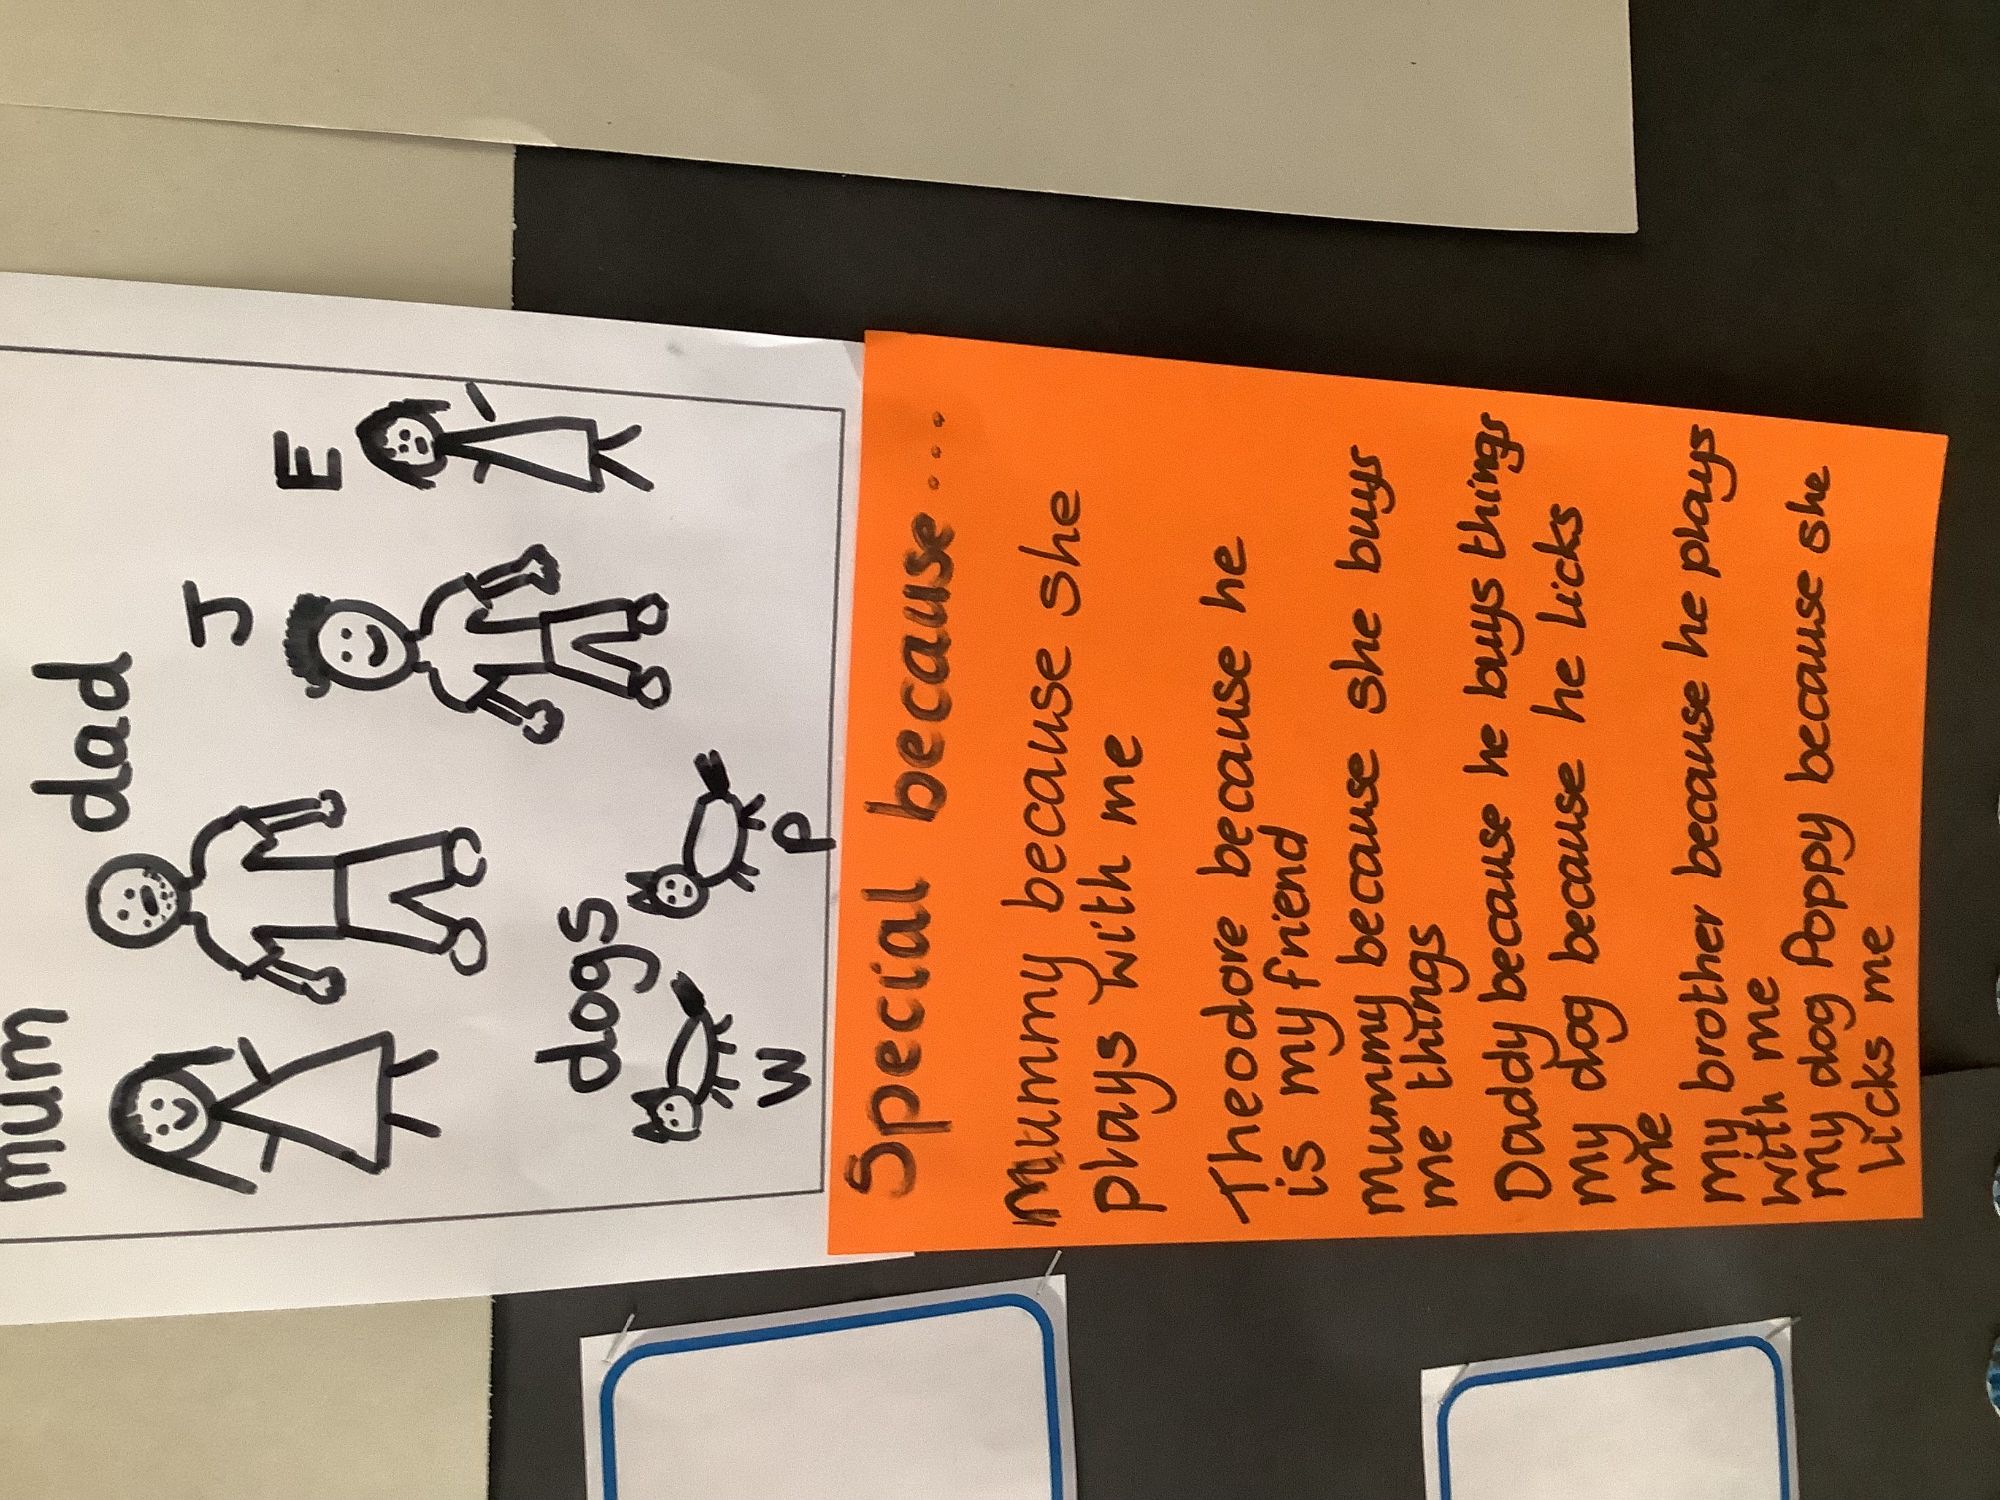 mum
dad
J
E
dogs
W
P
Special because....
mummy because she
plays with me
Theodore because he
is my friend
mummy because she buys
me things
Daddy because he buys things
my dog because he licks
me
my brother because he plays
with me
my dog Poppy because she
licks me